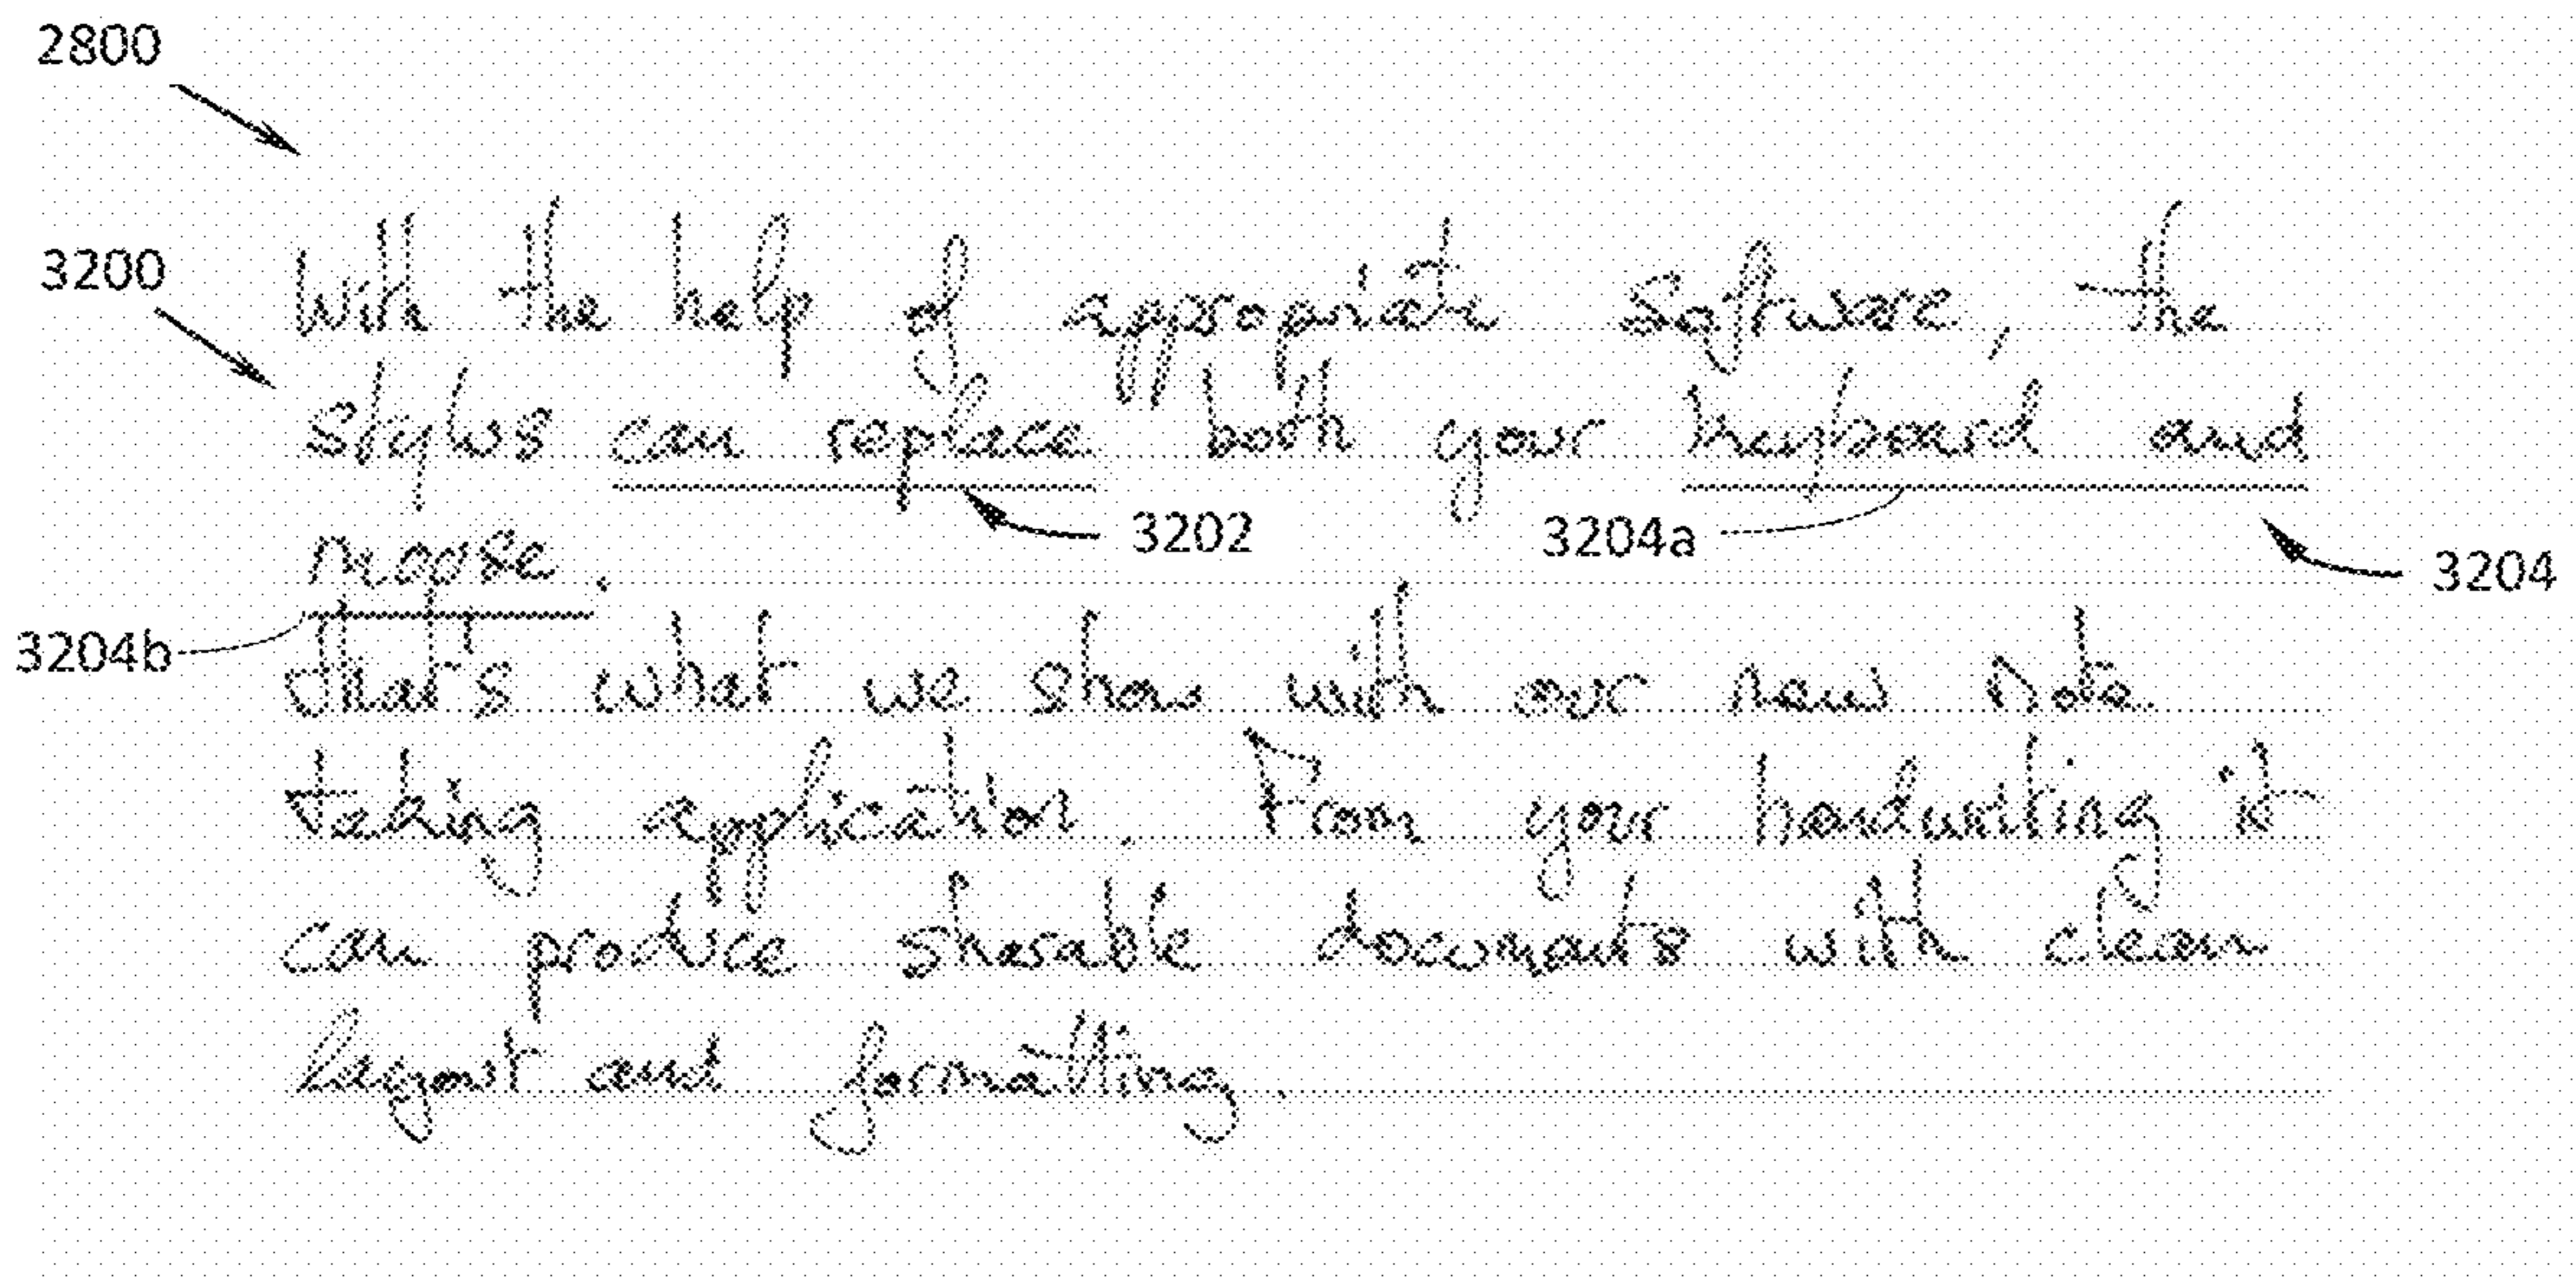 2800
With the help of appropriate Software, the
3200
stylus can replace both your keyboard and
3202
3204a
3204
moose.
3204b
that's what we show with our new Note
taking application. From your handwriting it
can produce sharable documents with clean
layout and formatting.